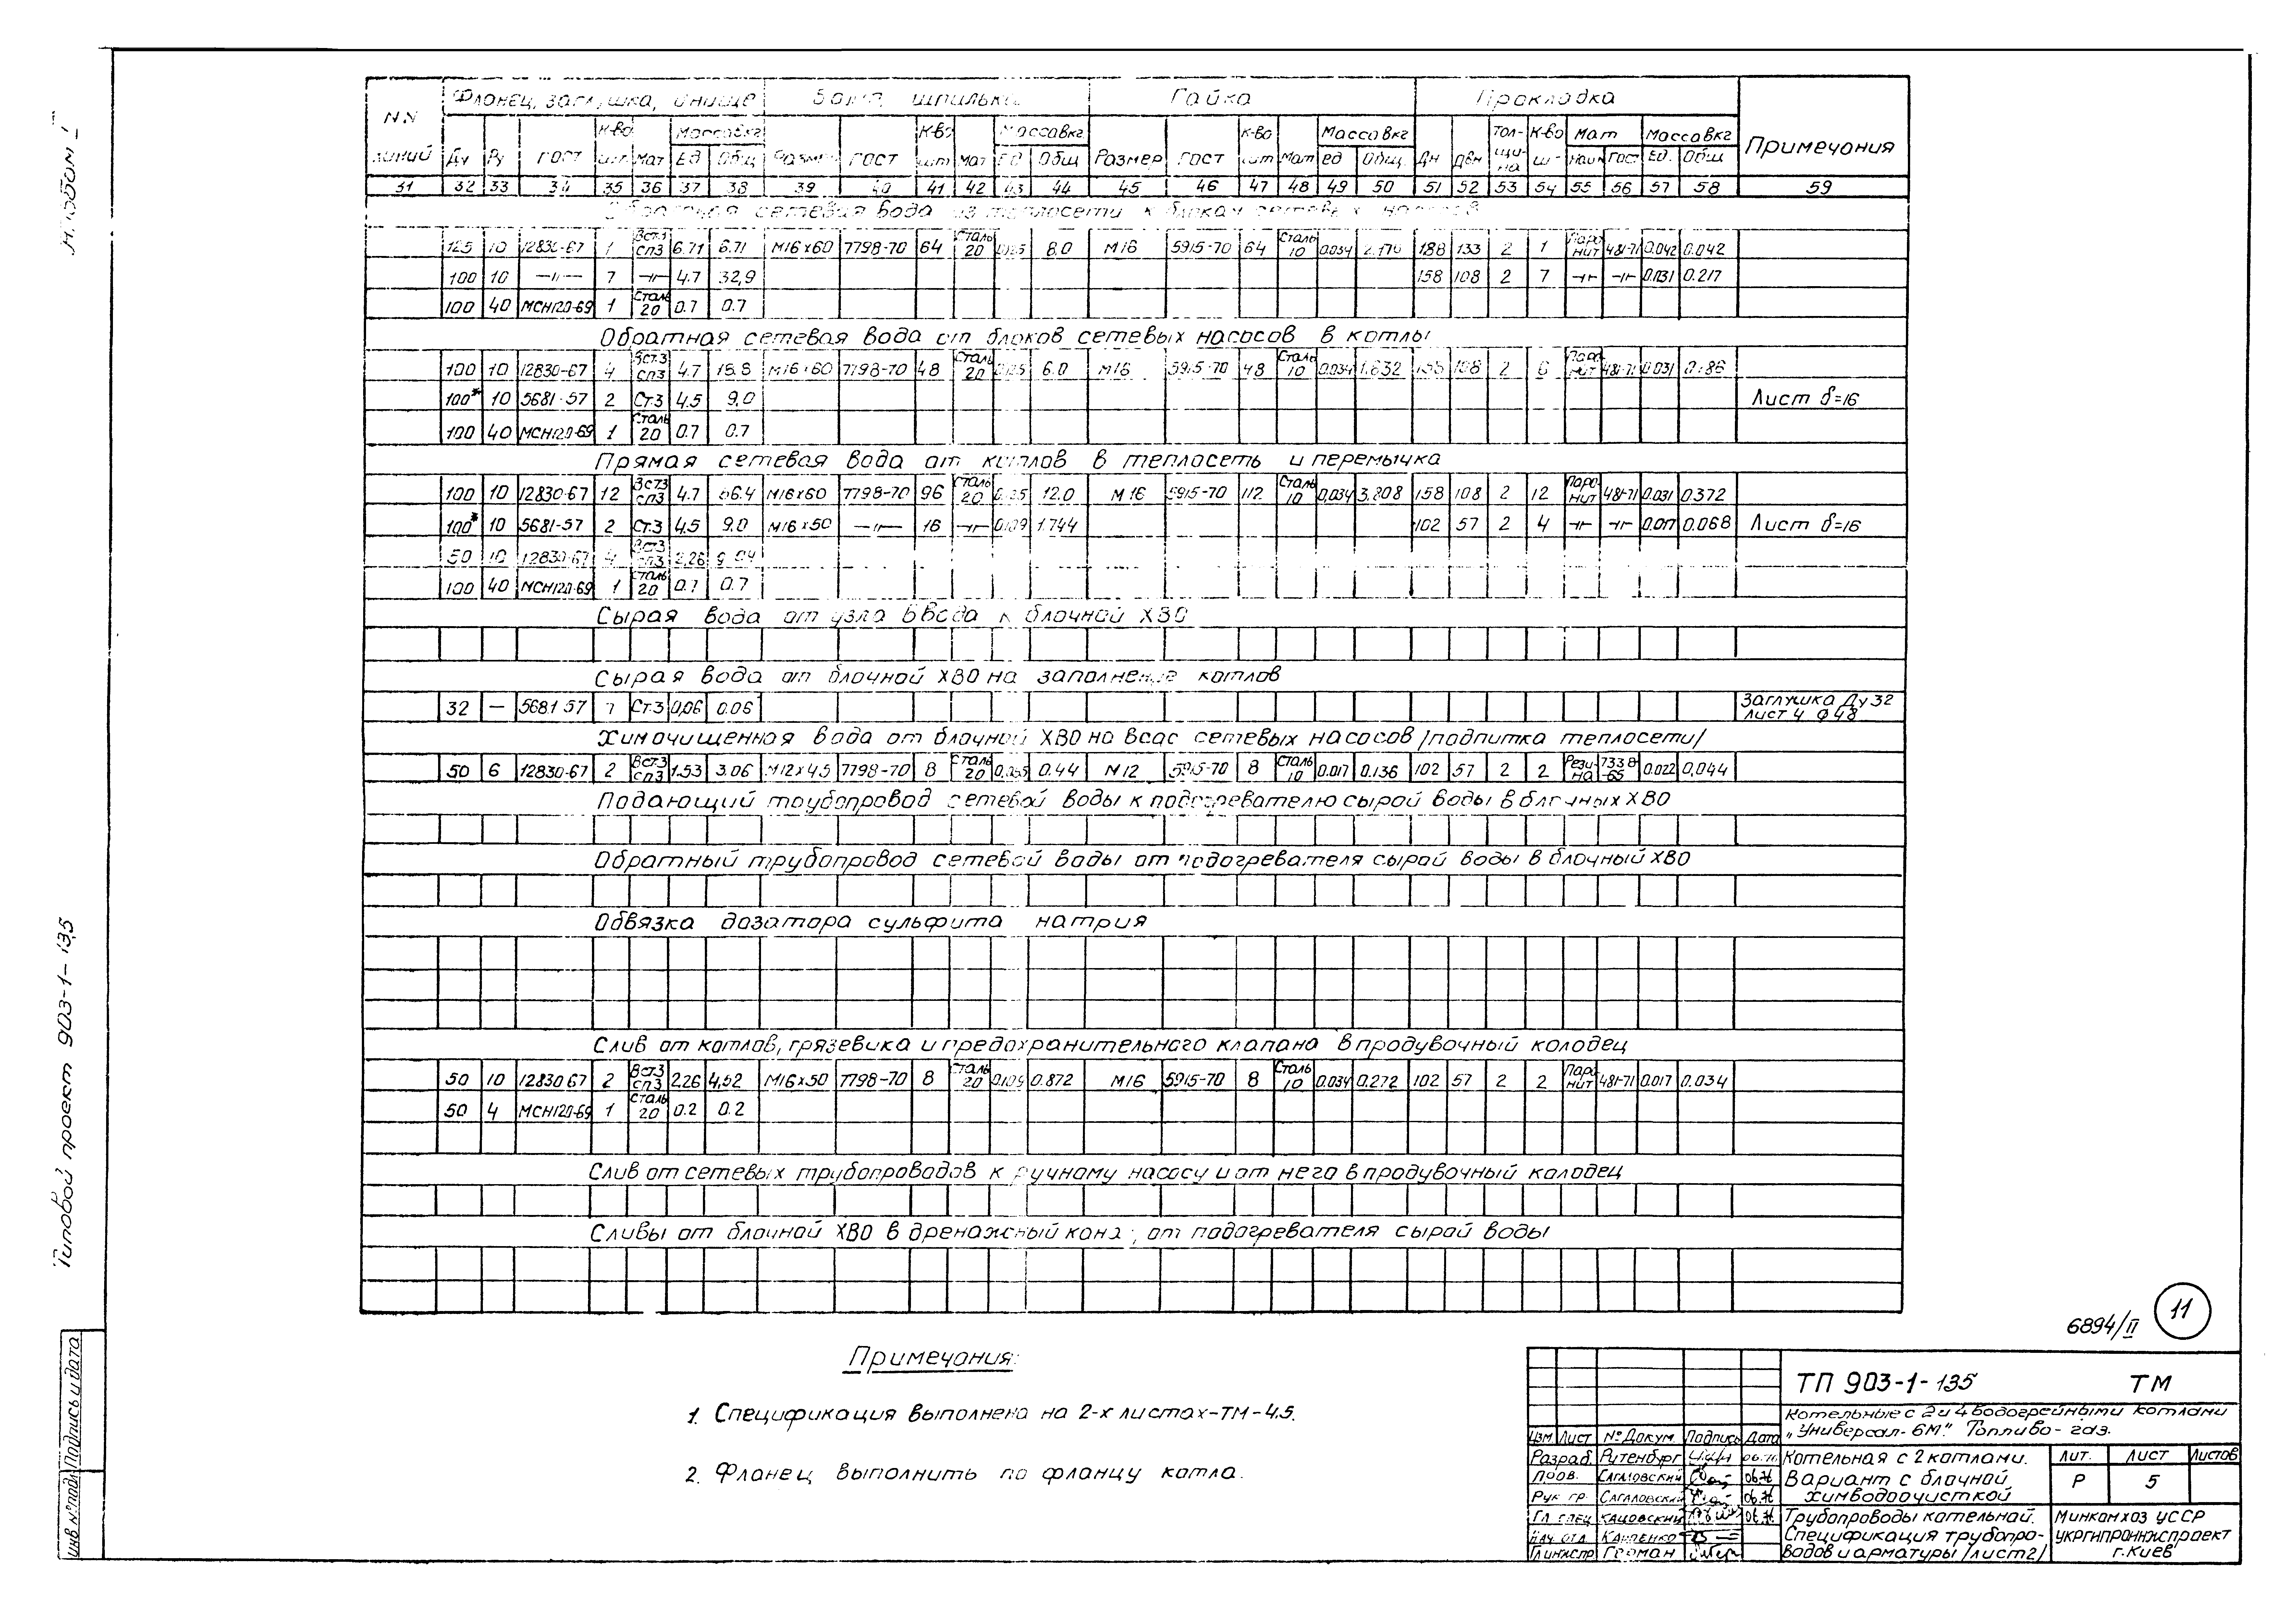 Альбом I
Типовой проект 903-1-135
Инв № подл Подпись и дата
NN линий
Фланец, заглушка, днище
Болт, шпилька
Гайка
Прокладка
Примечания
К-во Масса в кг К-во Масса в кг К-во Масса в кг Тол-щи-на К-во Мат Масса в кг
Ду Ру ГОСТ шт. Мат Ед Общ Размер ГОСТ шт Мат Ед Общ Размер ГОСТ шт Мат ед Общ. Дн Двн ш- Наим Гост Ед. Общ
31 32 33 34 35 36 37 38 39 40 41 42 43 44 45 46 47 48 49 50 51 52 53 54 55 56 57 58 59
Обратная сетевая вода из теплосети к блокам сетевых насосов
125 10 12830-67 1 Вст.3 сп3 6.71 6.71 М16х60 7798-70 64 Сталь 20 0.125 8.0 М16 5915-70 64 Сталь 10 0.034 2.176 188 133 2 1 Паро нит 481-71 0.042 0.042
100 10 —"— 7 —"— 4.7 32,9 158 108 2 7 —"— —"— 0.031 0.217
100 40 МСН120-69 1 Сталь 20 0.7 0.7
Обратная сетевая вода от блоков сетевых насосов в котлы
100 10 12830-67 4 Вст.3 сп3 4.7 18.8 М16х60 7798-70 48 Сталь 20 0.125 6.0 М16 5915-70 48 Сталь 10 0.034 1.632 158 108 2 6 Паро нит 481-71 0.031 0.186
100* 10 5681-57 2 Ст.3 4.5 9.0 Лист δ=16
100 40 МСН120-69 1 Сталь 20 0.7 0.7
Прямая сетевая вода от котлов в теплосеть и перемычка
100 10 12830-67 12 Вст3 сп3 4.7 56.4 М16х60 7798-70 96 Сталь 20 0.125 12.0 М16 5915-70 112 Сталь 10 0.034 3.808 158 108 2 12 Паро нит 481-71 0.031 0.372
100* 10 5681-57 2 Ст.3 4.5 9.0 М16х50 —"— 16 —"— 0.109 1.744 102 57 2 4 —"— —"— 0.017 0.068 Лист δ=16
50 10 12830-67 4 Вст3 сп3 2,26 9.04
100 40 МСН120-69 1 Сталь 20 0.7 0.7
Сырая вода от узла ввода к блочной ХВО
Сырая вода от блочной ХВО на заполнение котлов
32 — 5681 57 1 Ст.3 0,06 0.06 Заглушка Ду 32 Лист 4 ф 48
Химочищенная вода от блочной ХВО на всас сетевых насосов /подпитка теплосети/
50 6 12830-67 2 Вст3 сп3 1.53 3.06 М12х45 7798-70 8 Сталь 20 0,055 0.44 М12 5915-70 8 Сталь 10 0.017 0.136 102 57 2 2 Рези-на 7338-65 0.022 0,044
Подающий трубопровод сетевой воды к подогревателю сырой воды в блочных ХВО
Обратный трубопровод сетевой воды от подогревателя сырой воды в блочный ХВО
Обвязка дозатора сульфита натрия
Слив от котлов, грязевика и предохранительного клапана в продувочный колодец
50 10 12830 67 2 Вст3 сп3 2.26 4,52 М16х50 7798-70 8 Сталь 20 0.109 0.872 М16 5915-70 8 Сталь 10 0.034 0.272 102 57 2 2 Паро нит 481-71 0.017 0.034
50 4 МСН120-69 1 Сталь 20 0.2 0.2
Слив от сетевых трубопроводов к ручному насосу и от него в продувочный колодец
Сливы от блочной ХВО в дренажный канал, от подогревателя сырой воды
Примечания:
1. Спецификация выполнена на 2-х листах-ТМ-4,5.
2. Фланец выполнить по фланцу котла.
6894/II
11
ТП 903-1-135 ТМ
Котельные с 2 и 4 водогрейными котлами
„Универсал-6М". Топливо- газ.
Изм Лист № Докум. Подпись Дата
Разраб. Рутенбург 06.76
Пров. Сагаловский 06.76
Рук гр. Сагаловский 06.76
Гл спец Кацовский 06.76
Нач отд.
Гл инж пр Герман
Котельная с 2 котлами.
Вариант с блочной
химводоочисткой
Лит. Лист Листов
Р 5
Трубопроводы котельной.
Спецификация трубопро-
водов и арматуры /лист 2/
Минкомхоз УССР
УКРГИПРОИНЖПРОЕКТ
г. Киев